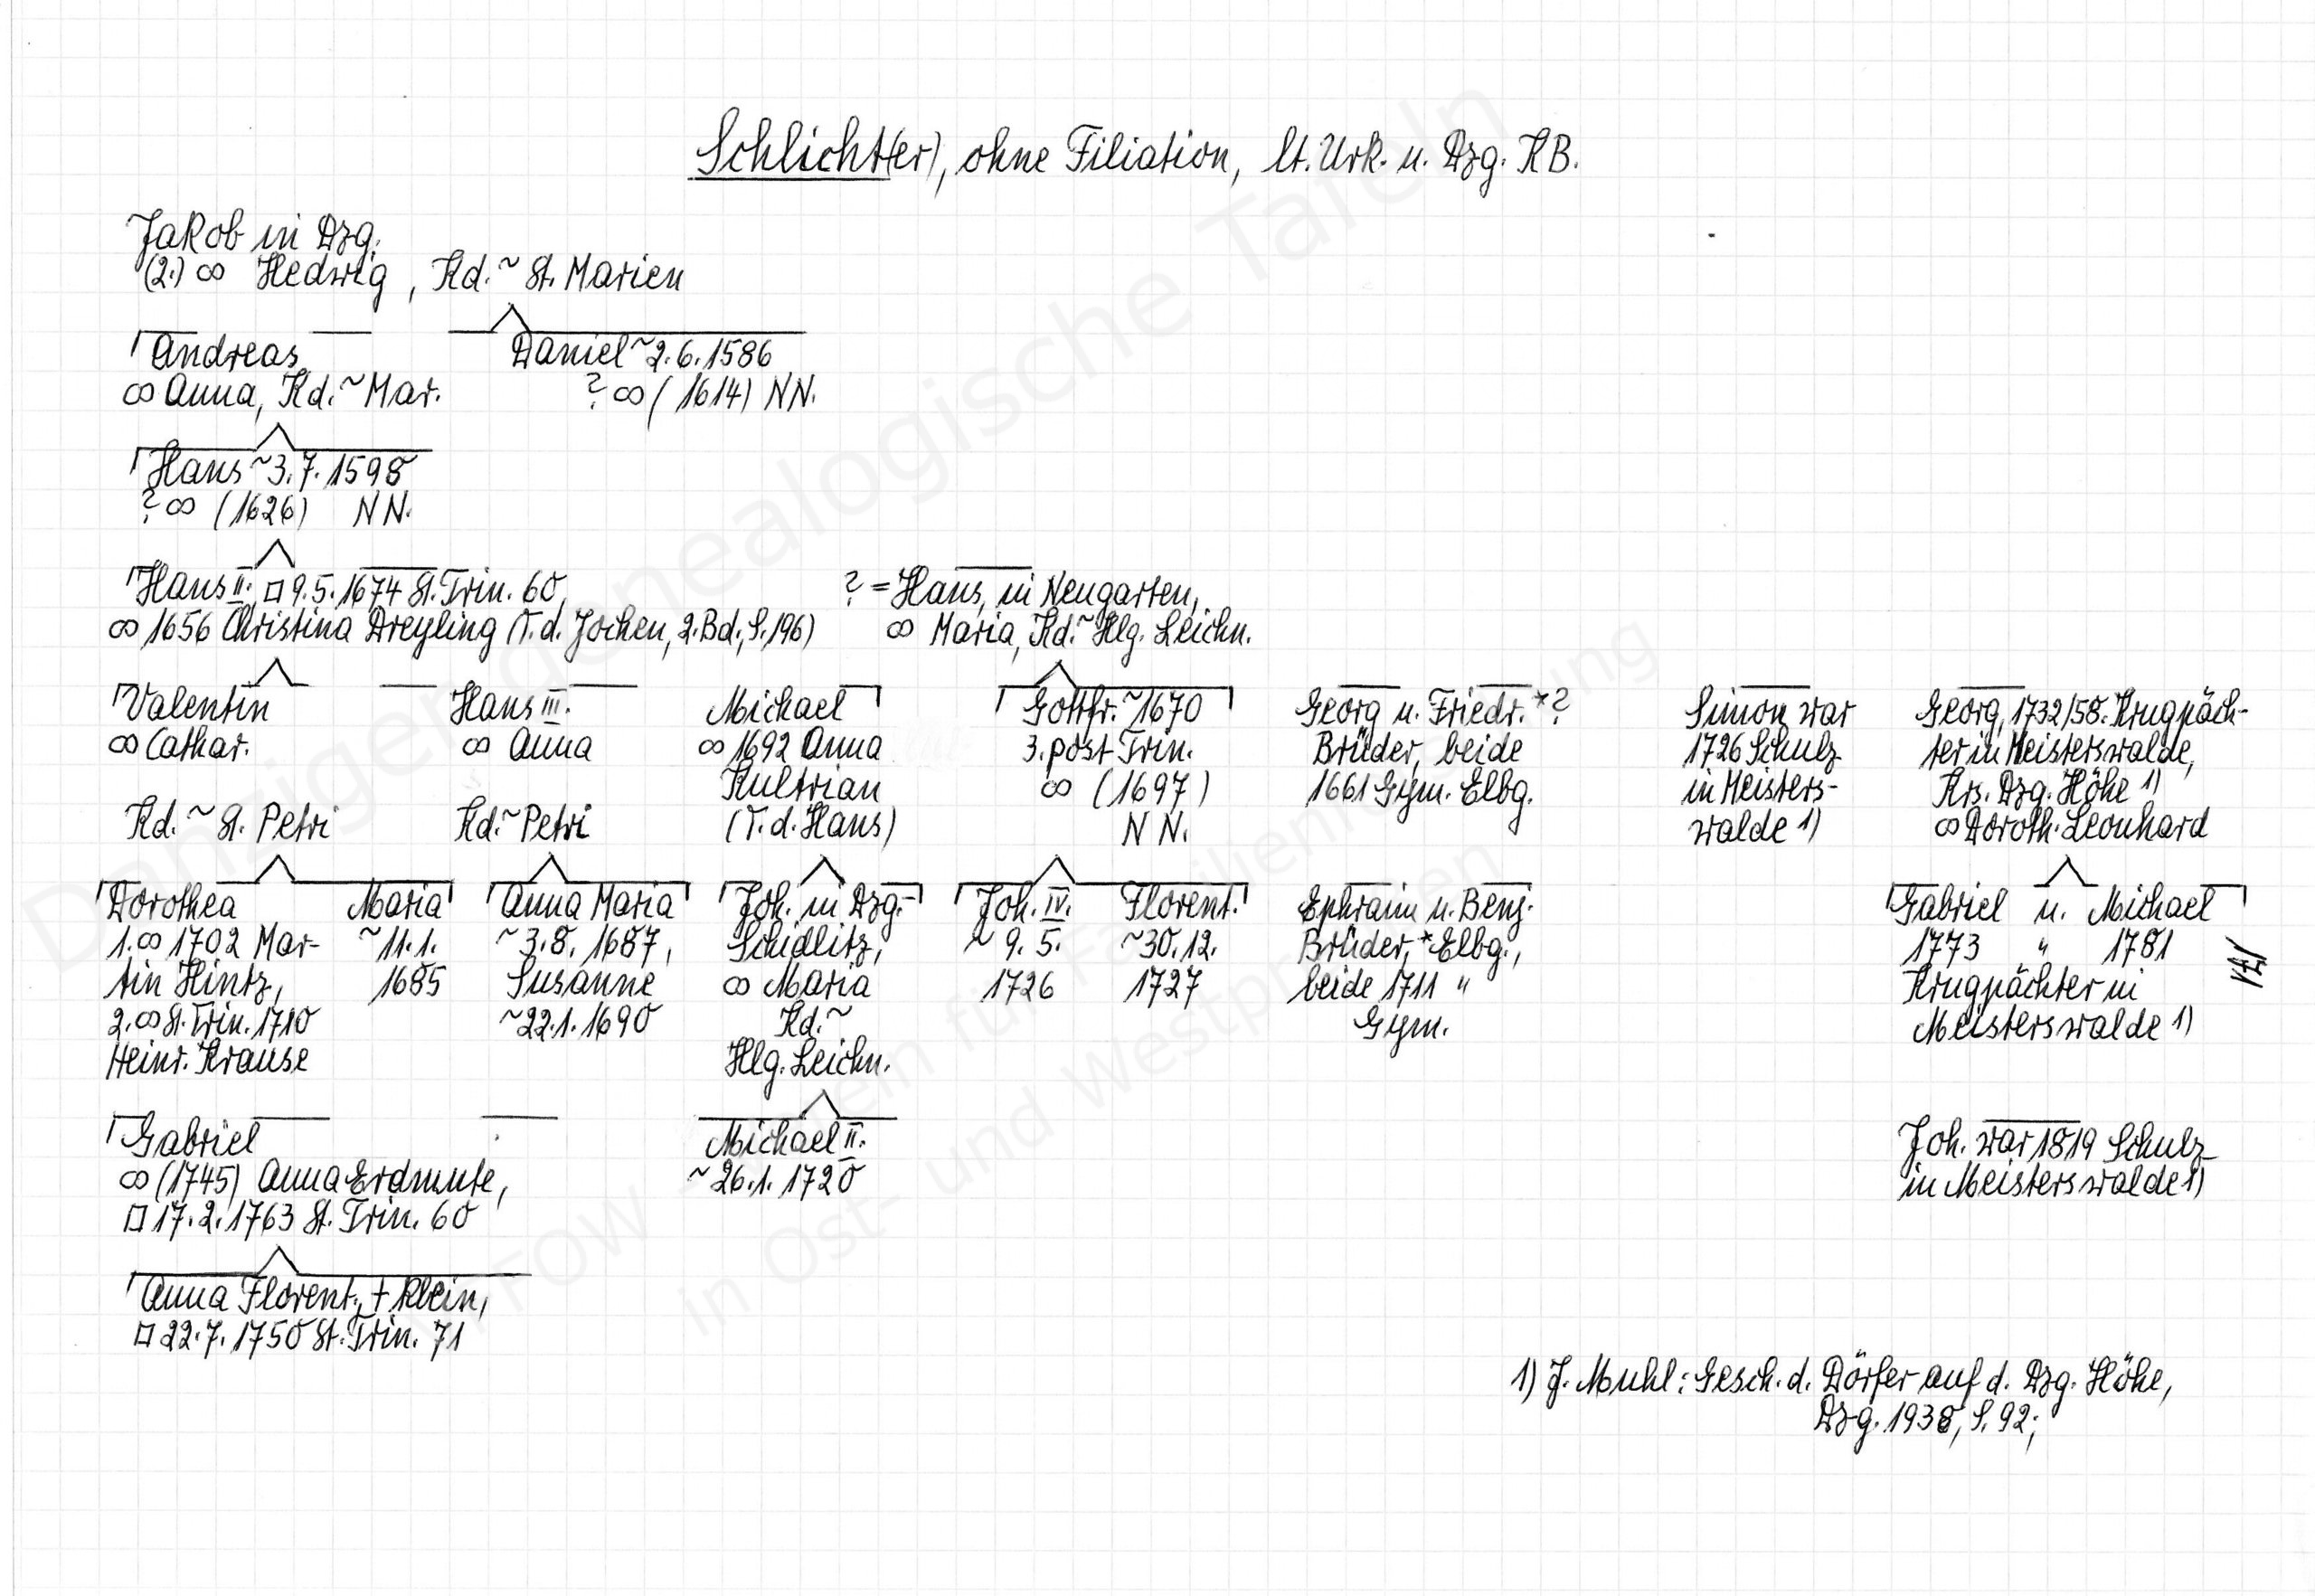 Schlicht(er), ohne Filiation, lt. Urk. u. Dzg. KB.
Jakob in Dzg.
(2.) ∞ Hedwig, Kd. ~ St. Marien
Andreas
∞ Anna, Kd. ~ Mar.
Daniel ~ 2.6.1586
? ∞ (1614) NN.
Hans ~ 3.7.1598
? ∞ (1626) NN.
Hans II. □ 9.5.1674 St. Trin. 60,
∞ 1656 Christina Dreyling (T. d. Jochen, 2. Bd., S. 196)
? = Hans, in Neugarten,
∞ Maria, Kd. ~ Hlg. Leichn.
Valentin
∞ Cathar.
Kd. ~ St. Petri
Hans III.
∞ Anna
Kd. ~ Petri
Michael
∞ 1692 Anna
Kultrian
(T. d. Hans)
Gottfr. ~ 1670
3. post Trin.
∞ (1697)
NN.
Georg u. Friedr. * ?
Brüder, beide
1661 Gym. Elbg.
Simon war
1726 Schulz
in Meisters-
walde 1)
Georg, 1732/58. Krugpäch-
ter in Meisterswalde,
Krs. Dzg. Höhe 1)
∞ Doroth. Leonhard
Dorothea
1. ∞ 1702 Mar-
tin Hintz,
2. ∞ St. Trin. 1710
Heinr. Krause
Maria
~ 11.1.
1685
Anna Maria
~ 3.8. 1687,
Susanne
~ 22.1. 1690
Joh. in Dzg.-
Schidlitz,
∞ Maria
Kd. ~
Hlg. Leichn.
Joh. IV.
~ 9.5.
1726
Florent.
~ 30.12.
1727
Ephraim u. Benj.
Brüder, * Elbg.,
beide 1711 "
Gym.
Gabriel u. Michael
1773 " 1781
Krugpächter in
Meisterswalde 1)
Gabriel
∞ (1745) Anna Erdmute,
□ 17.2.1763 St. Trin. 60
Michael II.
~ 26.1. 1720
Joh. war 1819 Schulz
in Meisterswalde 1)
Anna Florent., + klein,
□ 22.7.1750 St. Trin. 71
1) J. Muhl: Gesch. d. Dörfer auf d. Dzg. Höhe,
Dzg. 1938, S. 92;
Danziger genealogische Tafeln